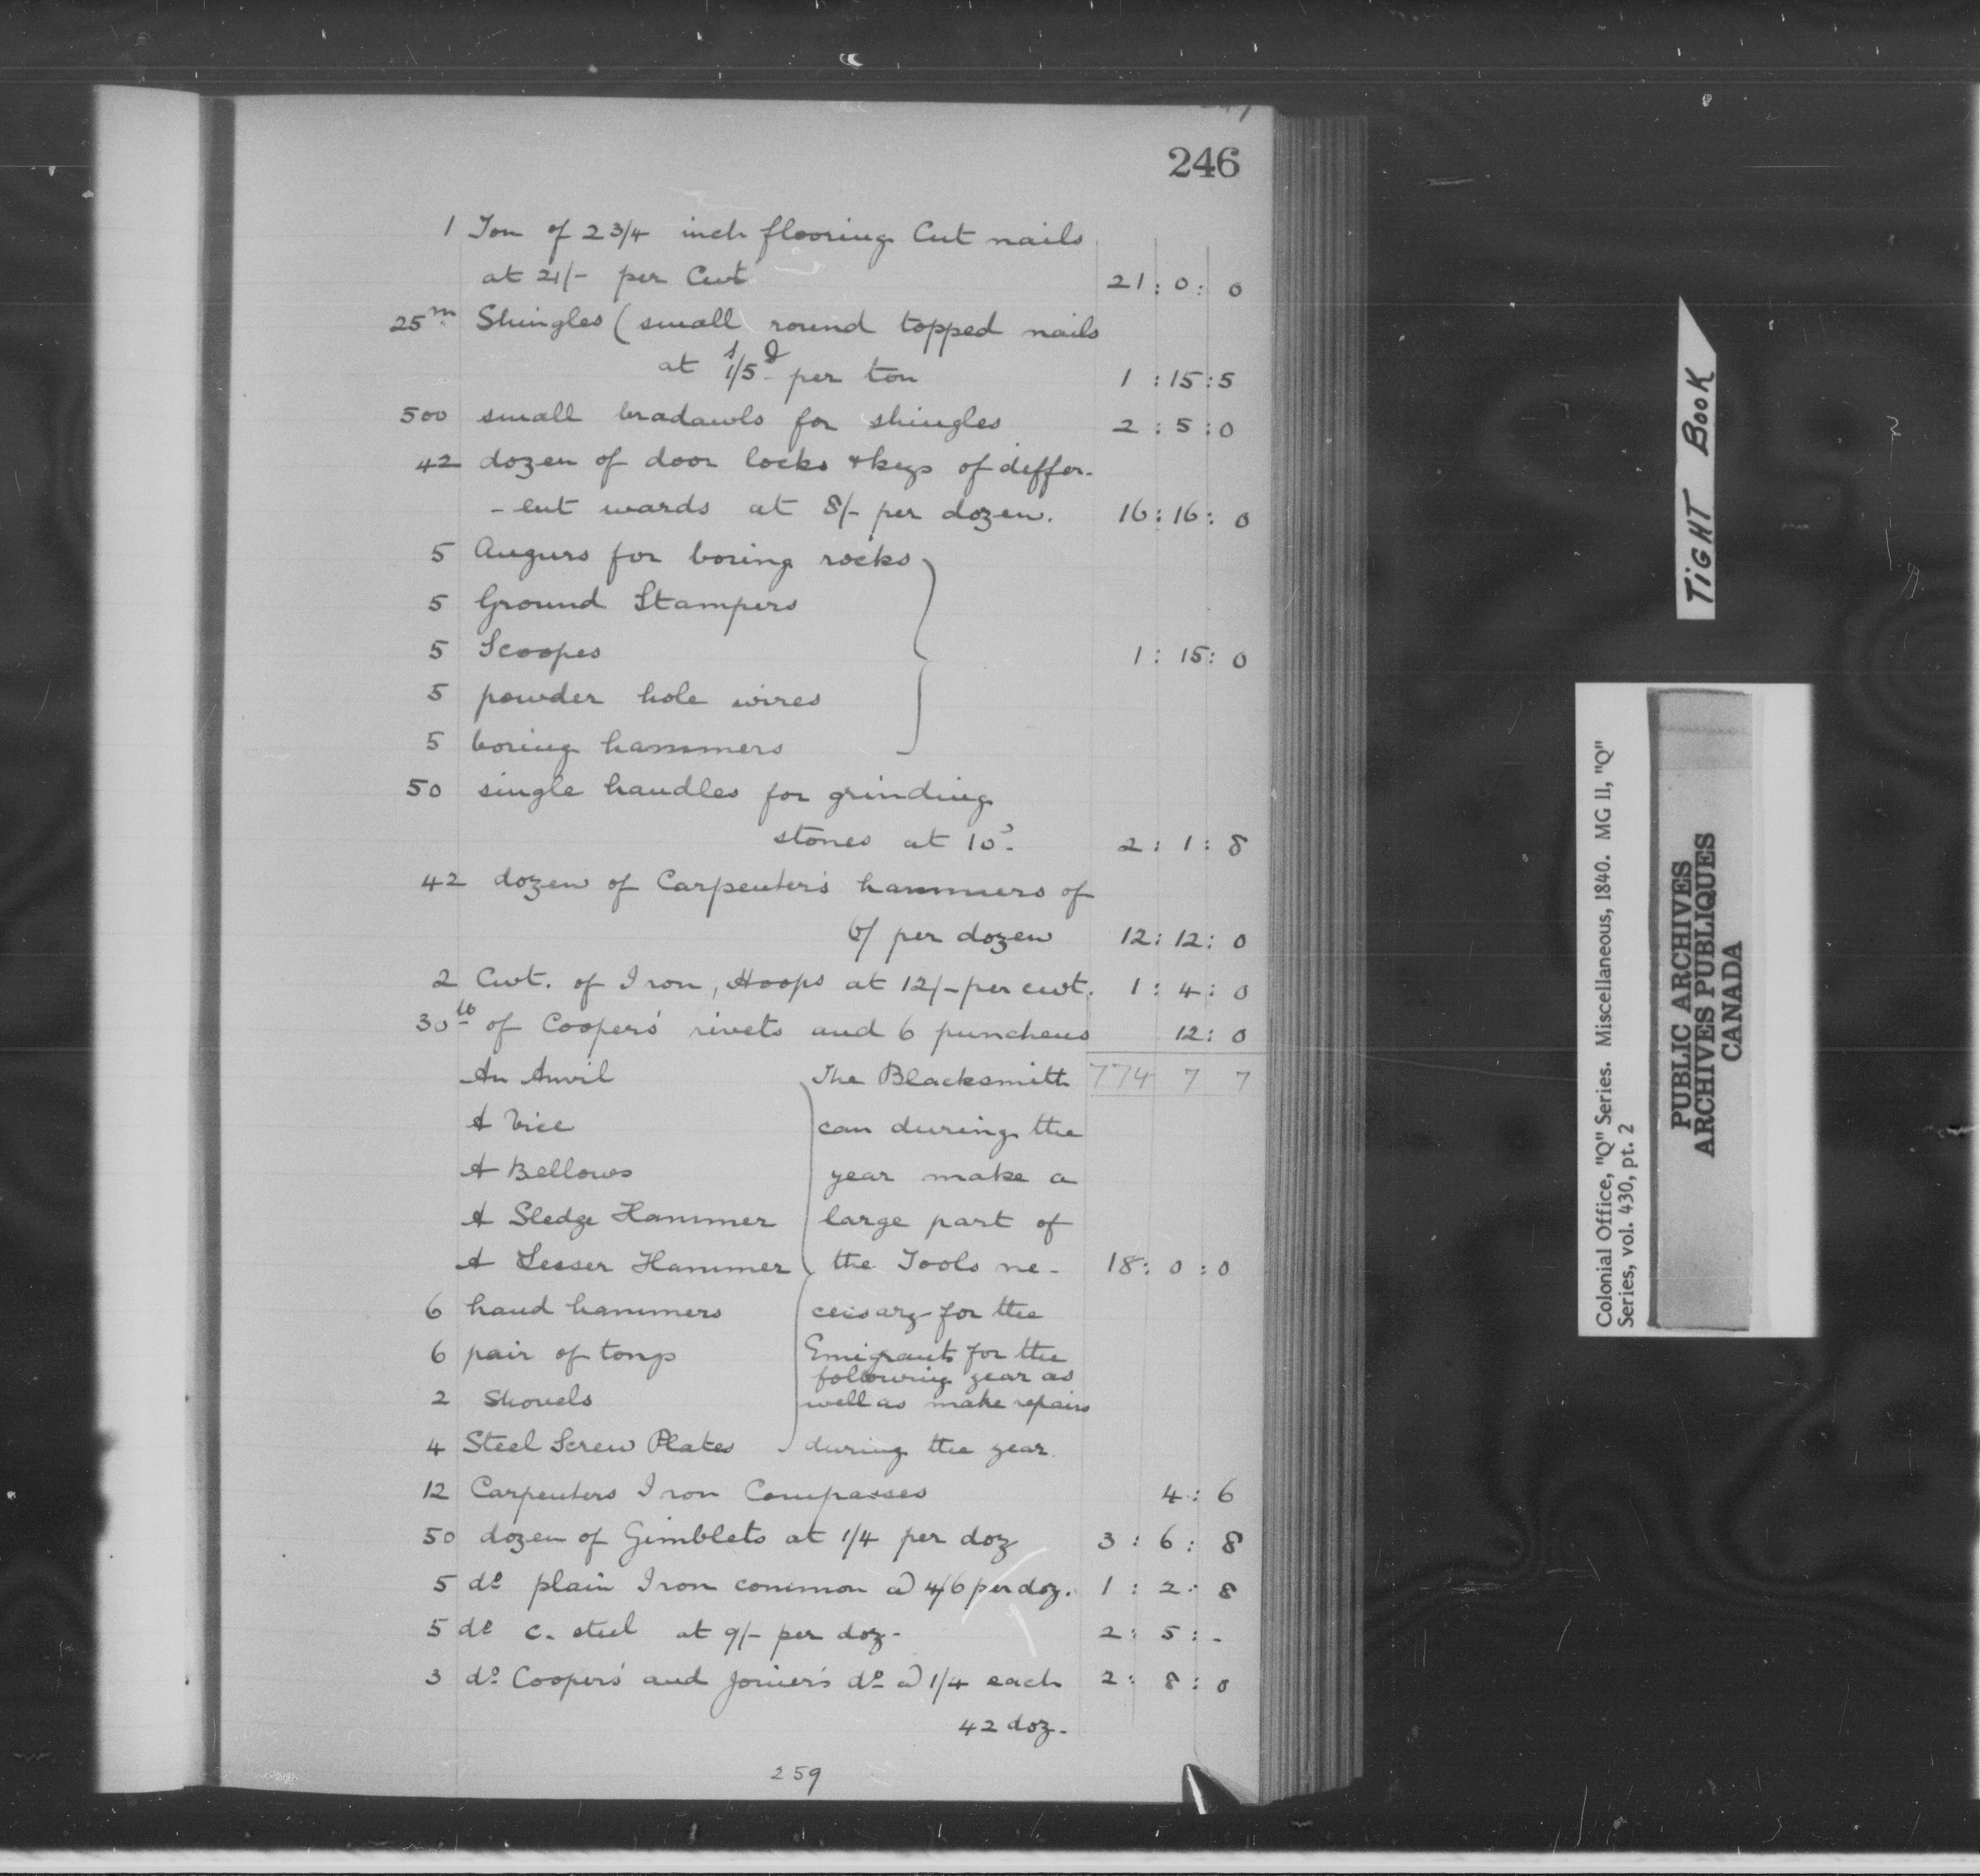 246
1 Ton of 2 3/4 inch flooring Cut nails
at 21/- per Cwt 21 : 0 : 0
25m Shingles (small round topped nails
at 1s/5d per ton 1 : 15 : 5
500 small bradawls for shingles 2 : 5 : 0
42 dozen of door locks & keys of differ-
-ent wards at 8/- per dozen. 16 : 16 : 0
5 Augurs for boring rocks
5 Ground Stampers
5 Scoopes 1 : 15 : 0
5 powder hole wires
5 boring hammers
50 single handles for grinding
stones at 10d. 2 : 1 : 8
42 dozen of Carpenter's hammers of
6/ per dozen 12 : 12 : 0
2 Cwt. of Iron, Hoops at 12/- per cwt. 1 : 4 : 0
30lb of Coopers' rivets and 6 punchens 12 : 0
An Anvil The Blacksmith 774 7 7
A Vice can during the
A Bellows year make a
A Sledge Hammer large part of
A Lesser Hammer the Tools ne- 18 : 0 : 0
6 hand hammers cessary for the
6 pair of tongs Emigrants for the
following year as
2 Shovels well as make repairs
4 Steel Screw Plates during the year.
12 Carpenters Iron Compasses 4 : 6
50 dozen of Gimblets at 1/4 per doz 3 : 6 : 8
5 do plain Iron common @ 4/6 per doz. 1 : 2 : 8
5 do c. steel at 9/- per doz- 2 : 5 : -
3 do Coopers' and Joiner's do @ 1/4 each 2 : 8 : 0
42 doz-
259
TIGHT BOOK
Colonial Office, "Q" Series. Miscellaneous, 1840. MG 11, "Q"
Series, vol. 430, pt. 2
PUBLIC ARCHIVES
ARCHIVES PUBLIQUES
CANADA